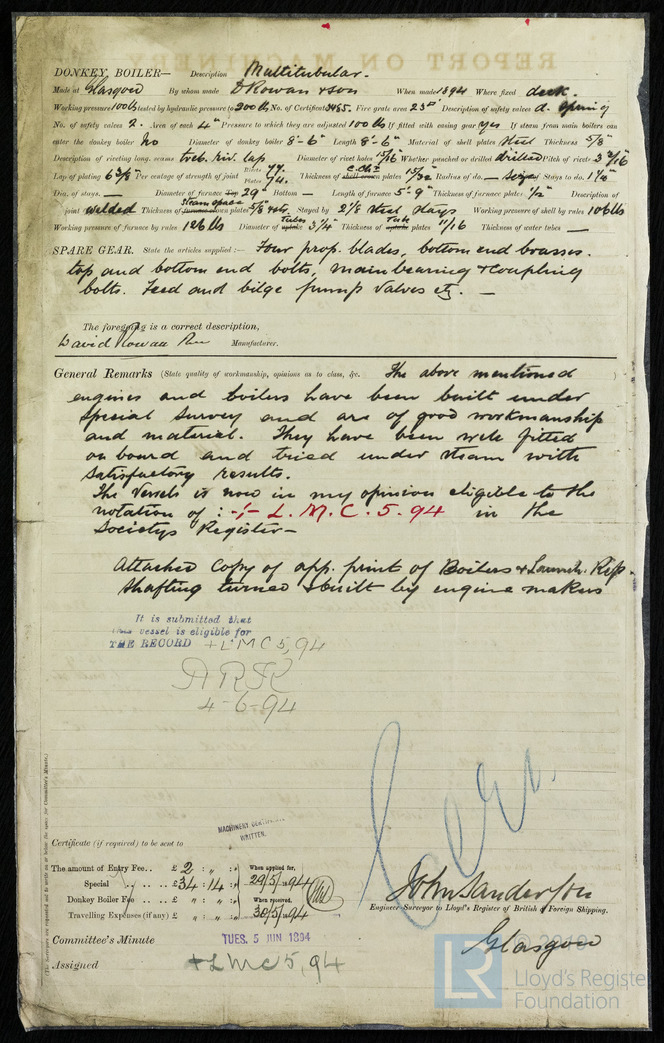 DONKEY BOILER— Description Multitubular.
Made at Glasgow By whom made D Rowan & Son When made 1894 Where fixed deck.
Working pressure 100 lb tested by hydraulic pressure to 200 lb No. of Certificate 3485. Fire grate area 23 □' Description of safety valves d. spring
No. of safety valves 2. Area of each 4" Pressure to which they are adjusted 100 lb If fitted with easing gear yes If steam from main boilers can
enter the donkey boiler No Diameter of donkey boiler 8'-6" Length 8'-6" Material of shell plates Steel Thickness 5/8"
Description of riveting long. seams treb. riv. lap Diameter of rivet holes 15/16 Whether punched or drilled drilled Pitch of rivets 3 9/16
Lap of plating 6 3/8" Per centage of strength of joint Rivets 77. Plates 74. Thickness of shell crown plates 15/32 Radius of do. — Stays to do. 1 1/8"
Dia. of stays. — Diameter of furnace Top 29" Bottom — Length of furnace 5'-9" Thickness of furnace plates 1/2" Description of
joint welded Thickness of furnace crown plates Steam space 5/8 Stayed by 2 1/8 steel stays Working pressure of shell by rules 106 lbs
Working pressure of furnace by rules 126 lbs Diameter of uptake Tubes 3 1/4 Thickness of uptake plates Tube 11/16 Thickness of water tubes —
SPARE GEAR. State the articles supplied:— Four prop. blades, bottom end brasses.
top and bottom end bolts, main bearing & coupling
bolts. Feed and bilge pump valves etc. —
The foregoing is a correct description,
David Rowan Manufacturer.
General Remarks (State quality of workmanship, opinions as to class, &c. The above mentioned
engines and boilers have been built under
Special Survey and are of good workmanship
and material. They have been well fitted
on board and tried under steam with
satisfactory results.
The Vessels is now in my opinion eligible to the
notation of: -/- L. M. C. 5. 94 in the
Societys Register—
Attached Copy of app. print of Boilers & Launch. Rep.
Shafting turned & built by engine makers
It is submitted that
this vessel is eligible for
THE RECORD + LMC 5,94
4-6-94
MACHINERY CERTIFICATE
WRITTEN.
Certificate (if required) to be sent to
The amount of Entry Fee.. £ 2 : " : " When applied for,
Special .. .. .. £ 34 : 14 : " 29/5/94
Donkey Boiler Fee .. .. £ " : " : " When received,
Travelling Expenses (if any) £ " : " : " 30/5/94
John Sanderson
Engineer-Surveyor to Lloyd's Register of British & Foreign Shipping.
Committee's Minute TUES. 5 JUN 1894
Glasgow
Assigned + LMC 5,94
LR
Lloyd's Register
Foundation